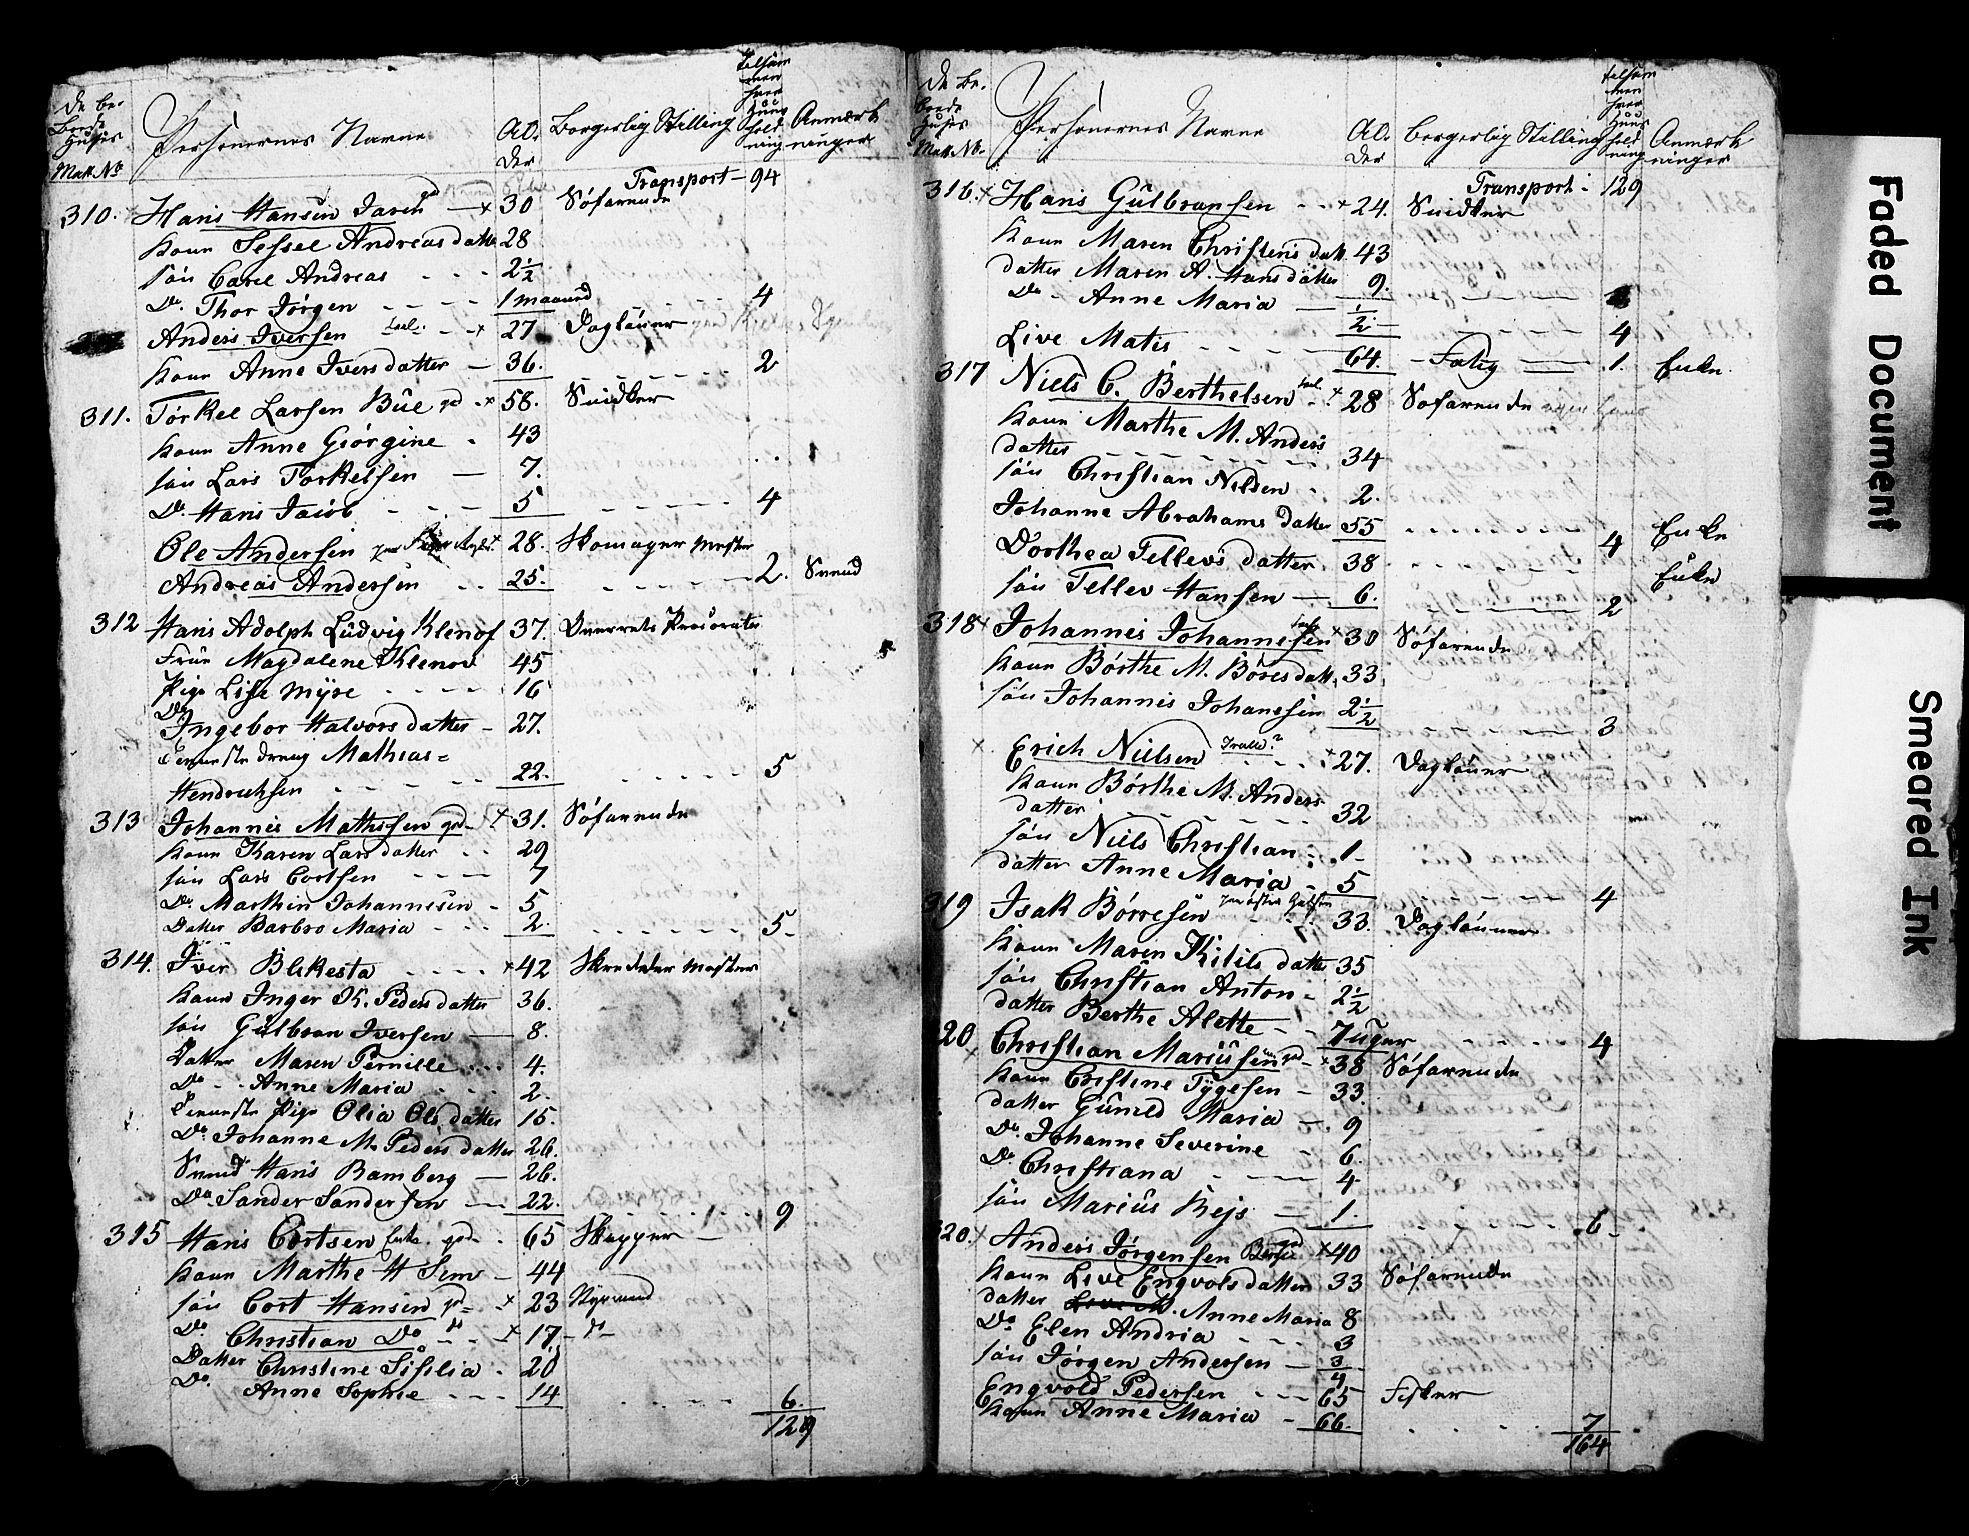 De be-
boede
Huses
Matr No
Personernes Navne
Al-
der
Borgerlig Stilling
tilsam
men
hver
Huus
hold
ning
Anmærk
ninger
Transport - 94
310. Hans Hansen Jaren gd × 30 Söfarende
Kone Sessel Andreas datter 28
sön Carel Andreas - - - 2½
Do Thor Jörgen - - - - 1 maaned - - - 4
Anders Iversen - - × 27 Daglöner
Kone Anne Ivers datter - 36. - - - - 2
311. Törkel Larsen Büe gd × 58. Snidker
Kone Anne Giörgine - 43
sön Lars Torkelsen — 7.
Do Hans Jacob - - - 5 - - - - 4
Ole Andersen × 28. Skomager Mester
Andreas Andersen - - 25. - - - - 2. Svend
312 Hans Adolph Lüdvig Klenof 37. Overrets Procurator
Frue Magdalene Klenov 45
Pige Lisse Myre - - - - 16
Do
Ingebor Halvors datter - 27.
Tieneste dreng Mathias =
Hendrichsen - - - - 22. - - - - 5
313 Johannes Mathisen gd - × 31. Söfarende
Kone Karen Lars datter - - 29
sön Lars Cortsen - - - 7
Do Marthin Johannesen - 5
Datter Barbro Maria - - - 2. - - - - 5 -
314. Iver Blekesta - - - - × 42 Skredder Mester
Kone Inger K. Peders datter 36.
sön Gülbran Iversen — 8.
Datter Maren Pernille - - - 4.
Do - - Anne Maria - - - 2.
Tieneste Pige Olia Ols datter 15.
Do Johanne M. Peders datter 26.
Svend Hans Bamberg — 26.
Do Sander Sandersen — 22. - - - - 9
315 Hans Cortsen gd - 65 Skipper —
Kone Marthe H Sem - 44
sön Cort Hansen gd - × 23 Styrmand
Do Christian Do do × 17. - do -
Datter Christine Sifilia - 20
Do Anne Sophie - - - 14 - - - - 6.
129
De be-
boede
Huses
Matr No.
Personernes Navne
Al-
der
Borgerlig Stilling
tilsam
men
hver
Huus
hold
ning
Anmærk
ninger
Transport - 129
316. × Hans Gülbransen - - × 24. Snidker
Kone Maren Christens datt. 43
datter Maren A. Hans datter 9.
Do - Anne Maria — ½ - - - - 4
Live Matis - - - - 64. - Fatig — 1. Enke.
317 Niels C. Berthelsen × 28 Söfarende
Kone Marthe M. Anders
datter - - - - - 34
sön Christian Nilsen - 2.
Johanne Abrahams datter 55 - - - - 4 Enke
Dorthea Tellevs datter 38 Enke
sön Tellev Hansen — 6. - - - - 2
318 × Johannes Johannesen × 30 Söfarende
Kone Börthe M. Börres datt. 33
sön Johannes Johanesen 2½ - - - - 3
× Erich Nielsen × 27. Daglöner
Kone Börthe M. Anders
datter - - - - - 32
sön Niels Christian - 1 -
datter Anne Maria - 5 - - - - 4
319 Isak Börresen 33. Daglöner
Kone Maren Kitils datter 35
sön Christian Anton - 2½
datter Berthe Alette - - 7 uger - - - - 4
320 × Christian Mariusen gd - × 38 Söfarende
Kone Cristine Tygesen - 33.
datter Güneld Maria - 9
Do. Johanne Severine - 6.
Do Christiana - - - - 4
sön Marius Rejs — 1. - - - - 6 -
320. × Anders Jörgensen gd × 40
Kone Live Engvols datter 33 Söfarende
datter Live M. Anne Maria 8
Do Elen Andria - - - 3
sön Jörgen Andersen — ¾
Engvold Pedersen - - - 65 Fisker
Kone Anne Maria - 66. - - - - 7
164
Faded Document
Smeared Ink